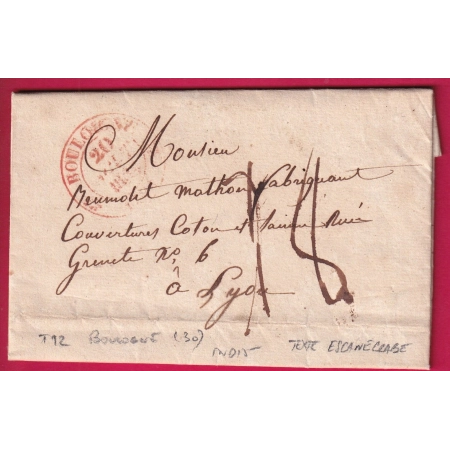 BOULOGNE
20
Monsieur
Meunndet Mathon fabriquant
Couvertures Coton et Laine Rue
Grenete No. 6
à Lyon
18
T 12 BOULOGNE (30)
INDIS TEXTE ESCANECRABE